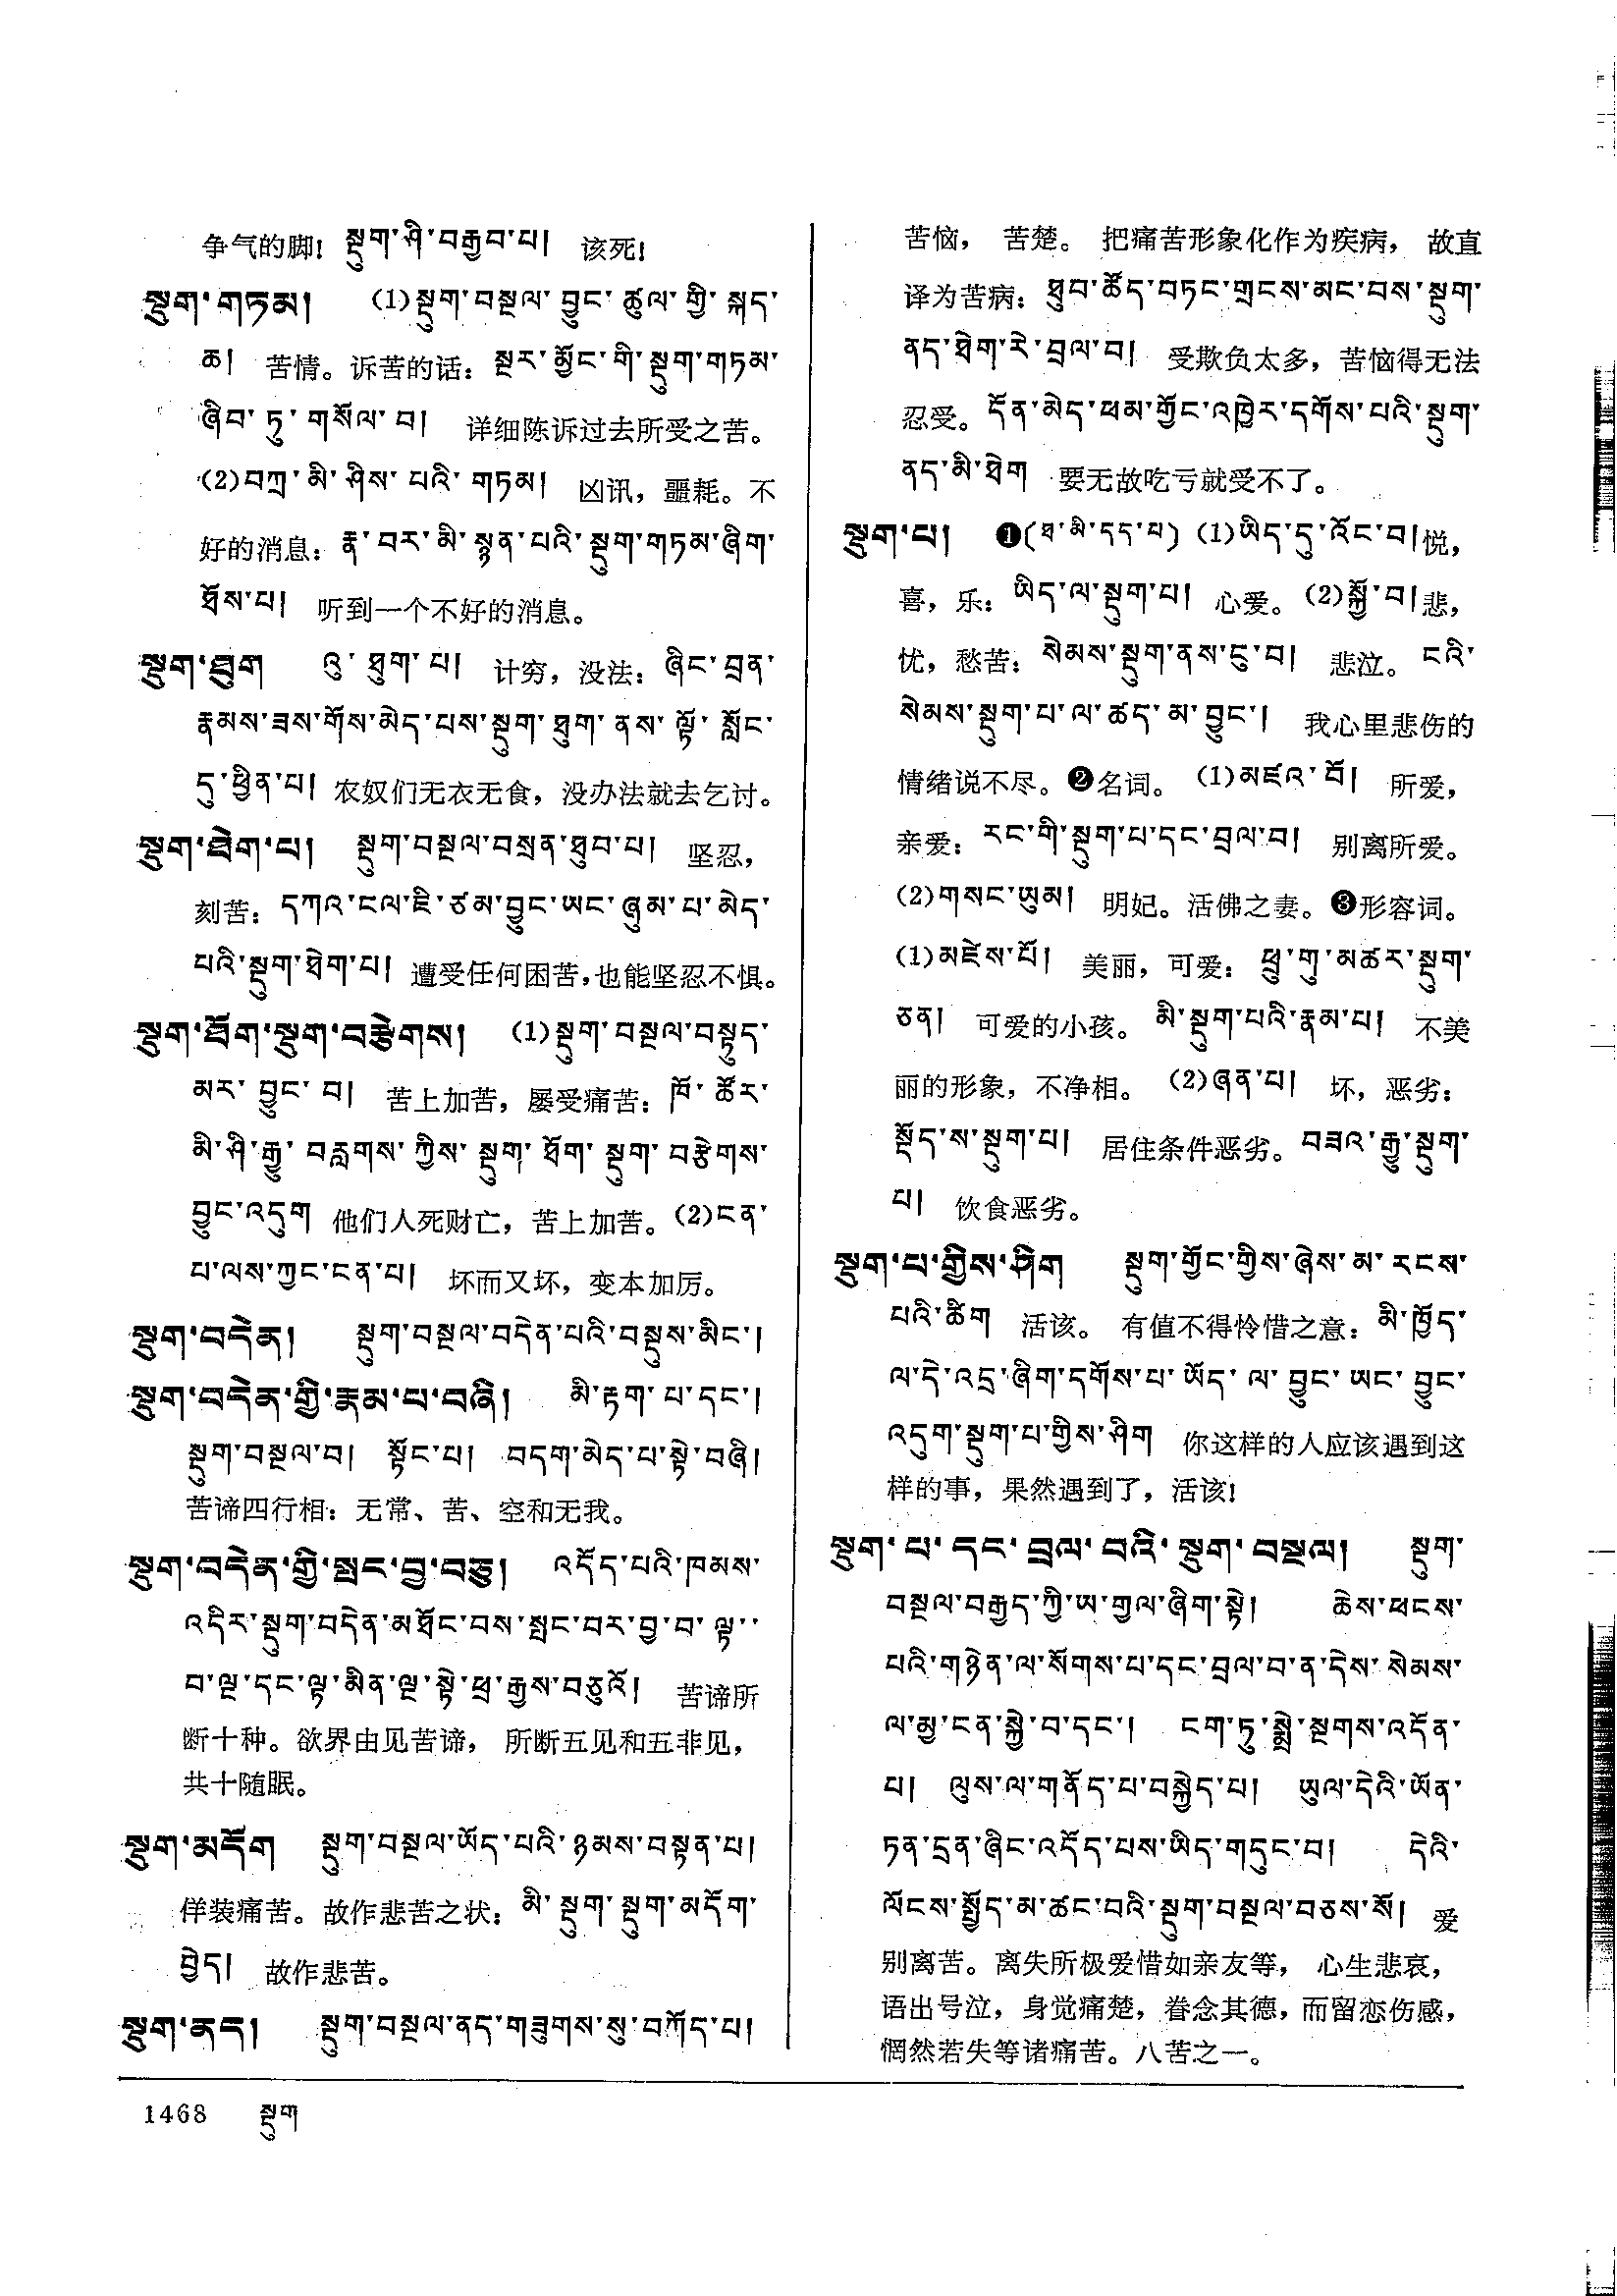 争气的脚! སྡུག་ཤི་བརྒྱབ་པ། 该死!
སྡུག་གཏམ། (1)སྡུག་བསྔལ་བྱུང་ཚུལ་གྱི་སྐད་
ཆ། 苦情。诉苦的话: སྔར་མྱོང་གི་སྡུག་གཏམ་
ཞིབ་ཏུ་གསོལ་བ། 详细陈诉过去所受之苦。
(2)བཀྲ་མི་ཤིས་པའི་གཏམ། 凶讯，噩耗。不
好的消息: རྣ་བར་མི་སྙན་པའི་སྡུག་གཏམ་ཞིག་
ཐོས་པ། 听到一个不好的消息。
སྡུག་ཐུག འུ་ཐུག་པ། 计穷，没法: ཞིང་བྲན་
རྣམས་ཟས་གོས་མེད་པས་སྡུག་ཐུག་ནས་ལྟོ་སློང་
དུ་ཕྱིན་པ། 农奴们无衣无食，没办法就去乞讨。
སྡུག་ཐེག་པ། སྡུག་བསྔལ་བསྲན་ཐུབ་པ། 坚忍，
刻苦: དཀའ་ངལ་ཇི་ཙམ་བྱུང་ཡང་ཞུམ་པ་མེད་
པའི་སྡུག་ཐེག་པ། 遭受任何困苦，也能坚忍不惧。
སྡུག་ཐོག་སྡུག་བརྩེགས། (1)སྡུག་བསྔལ་བསྟུད་
མར་བྱུང་བ། 苦上加苦，屡受痛苦: ཁོ་ཚོར་
མི་ཤི་རྒྱུ་བརླགས་ཀྱིས་སྡུག་ཐོག་སྡུག་བརྩེགས་
བྱུང་འདུག 他们人死财亡，苦上加苦。(2)ངན་
པ་ལས་ཀྱང་ངན་པ། 坏而又坏，变本加厉。
སྡུག་བདེན། སྡུག་བསྔལ་བདེན་པའི་བསྡུས་མིང་།
སྡུག་བདེན་གྱི་རྣམ་པ་བཞི། མི་རྟག་པ་དང་།
སྡུག་བསྔལ་བ། སྟོང་པ། བདག་མེད་པ་སྟེ་བཞི།
苦谛四行相: 无常、苦、空和无我。
སྡུག་བདེན་གྱི་སྤང་བྱ་བཅུ། འདོད་པའི་ཁམས་
འདིར་སྡུག་བདེན་མཐོང་བས་སྤང་བར་བྱ་བ་ལྟ་་
བ་ལྔ་དང་ལྟ་མིན་ལྔ་སྟེ་ཕྲ་རྒྱས་བཅུའོ། 苦谛所
断十种。欲界由见苦谛，所断五见和五非见，
共十随眠。
སྡུག་མདོག སྡུག་བསྔལ་ཡོད་པའི་ཉམས་བསྟན་པ།
佯装痛苦。故作悲苦之状: མི་སྡུག་སྡུག་མདོག་
བྱེད། 故作悲苦。
སྡུག་ནད། སྡུག་བསྔལ་ནད་གཟུགས་སུ་བཀོད་པ།
苦恼，苦楚。把痛苦形象化作为疾病，故直
译为苦病: ཐུབ་ཚོད་བཏང་གྲངས་མང་བས་སྡུག་
ནད་ཐེག་རེ་བྲལ་བ། 受欺负太多，苦恼得无法
忍受。དོན་མེད་ཕམ་གྱོང་འཁྱེར་དགོས་པའི་སྡུག་
ནད་མི་ཐེག 要无故吃亏就受不了。
སྡུག་པ། ❶(ཐ་མི་དད་པ) (1)ཡིད་དུ་འོང་བ། 悦，
喜，乐: ཡིད་ལ་སྡུག་པ། 心爱。(2)སྐྱོ་བ། 悲，
忧，愁苦: སེམས་སྡུག་ནས་ངུ་བ། 悲泣。ངའི་
སེམས་སྡུག་པ་ལ་ཚད་མ་བྱུང་། 我心里悲伤的
情绪说不尽。❷名词。(1)མཛའ་བོ། 所爱，
亲爱: རང་གི་སྡུག་པ་དང་བྲལ་བ། 别离所爱。
(2)གསང་ཡུམ། 明妃。活佛之妻。❸形容词。
(1)མཛེས་པོ། 美丽，可爱: ཕྲུ་གུ་མཚར་སྡུག་
ཅན། 可爱的小孩。མི་སྡུག་པའི་རྣམ་པ། 不美
丽的形象，不净相。(2)ཞན་པ། 坏，恶劣:
སྡོད་ས་སྡུག་པ། 居住条件恶劣。བཟའ་རྒྱུ་སྡུག་
པ། 饮食恶劣。
སྡུག་པ་གྱིས་ཤིག སྡུག་གྱོང་གྱིས་ཞེས་མ་རངས་
པའི་ཚིག 活该。有值不得怜惜之意: མི་ཁྱོད་
ལ་དེ་འདྲ་ཞིག་དགོས་པ་ཡོད་ལ་བྱུང་ཡང་བྱུང་
འདུག་སྡུག་པ་གྱིས་ཤིག 你这样的人应该遇到这
样的事，果然遇到了，活该!
སྡུག་པ་དང་བྲལ་བའི་སྡུག་བསྔལ། སྡུག་
བསྔལ་བརྒྱད་ཀྱི་ཡ་གྱལ་ཞིག་སྟེ། ཆེས་ཕངས་
པའི་གཉེན་ལ་སོགས་པ་དང་བྲལ་བ་ན་དེས་སེམས་
ལ་མྱ་ངན་སྐྱེ་བ་དང་། ངག་ཏུ་སྨྲེ་སྔགས་འདོན་
པ། ལུས་ལ་གནོད་པ་བསྐྱེད་པ། ཡུལ་དེའི་ཡོན་
ཏན་དྲན་ཞིང་འདོད་པས་ཡིད་གདུང་བ། དེའི་
ལོངས་སྤྱོད་མ་ཚང་བའི་སྡུག་བསྔལ་བཅས་སོ། 爱
别离苦。离失所极爱惜如亲友等，心生悲哀，
语出号泣，身觉痛楚，眷念其德，而留恋伤感，
惘然若失等诸痛苦。八苦之一。
1468 སྡུག